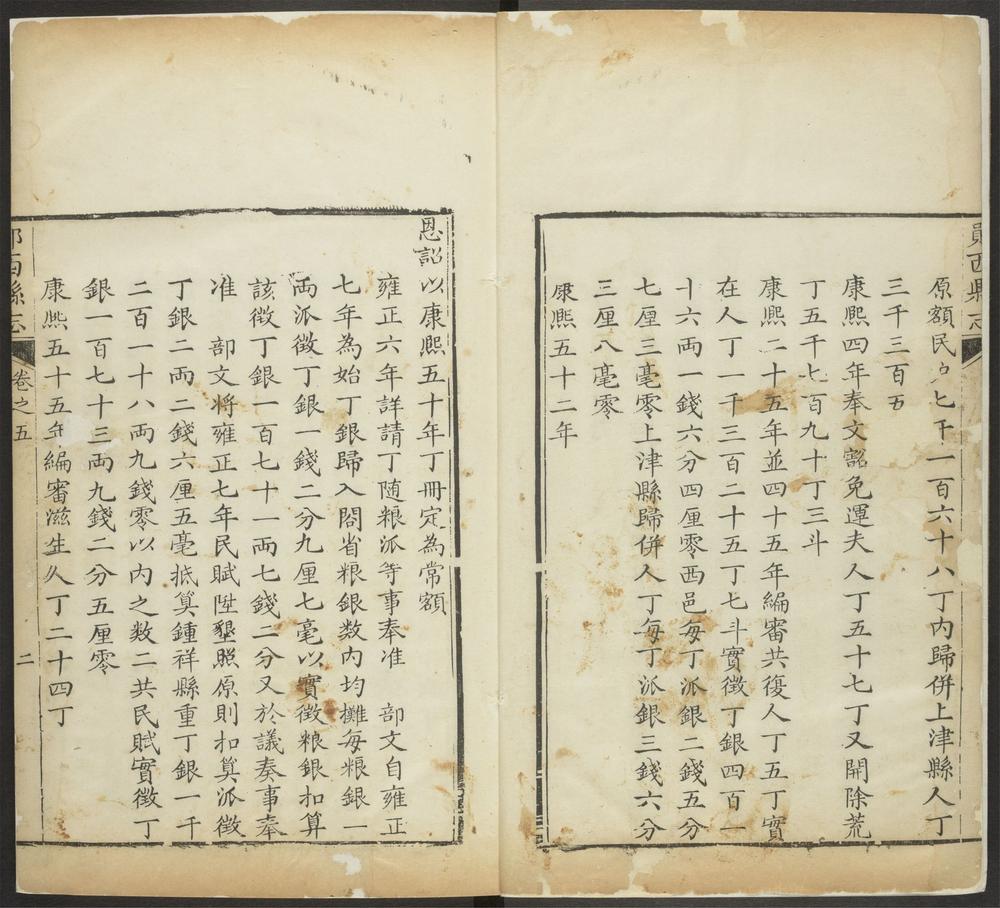 鄖西縣志
原額民戶七千一百六十八丁內歸併上津縣人丁
三千三百五
康熙四年奉文豁免運夫人丁五十七丁又開除荒
丁五千七百九十丁三斗
康熙二十五年並四十五年編審共復人丁五丁實
在人丁一千三百二十五丁七斗實徵丁銀四百一
十六両一錢六分四厘零西邑每丁派銀二錢五分
七厘三毫零上津縣歸併人丁每丁派銀三錢六分
三厘八毫零
康熙五十二年
恩詔以康熙五十年丁冊定為常額
雍正六年詳請丁随粮派等事奉准 部文自雍正
七年為始丁銀歸入閤省粮銀数內均攤每粮銀一
両派徵丁銀一錢二分九厘七毫以實徵粮銀扣算
該徵丁銀一百七十一両七錢二分又於議奏事奉
准 部文將雍正七年民賦陞墾照原則扣算派徵
丁銀二両二錢六厘五毫抵算鍾祥縣重丁銀一千
二百一十八両九錢零以內之数二共民賦實徵丁
銀一百七十三両九錢二分五厘零
康熙五十五年編審滋生人丁二十四丁
鄖西縣志
卷之五
二